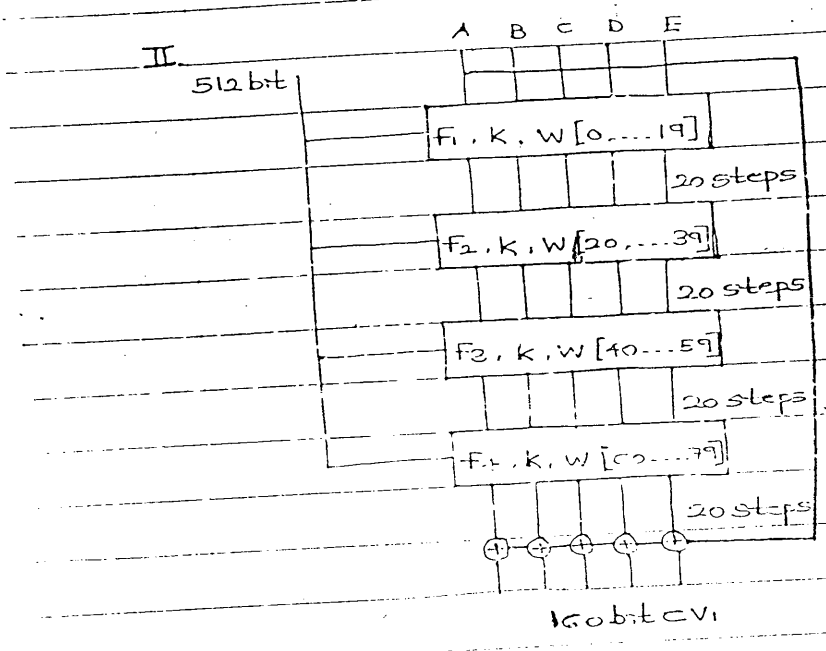 A B C D E
II.
512 bit
F1, K, W [0....19]
20 steps
F2, K, W [20,....39]
20 steps
F3, K, W [40...59]
20 steps
F4, K, W [60....79]
20 steps
160 bit CV1